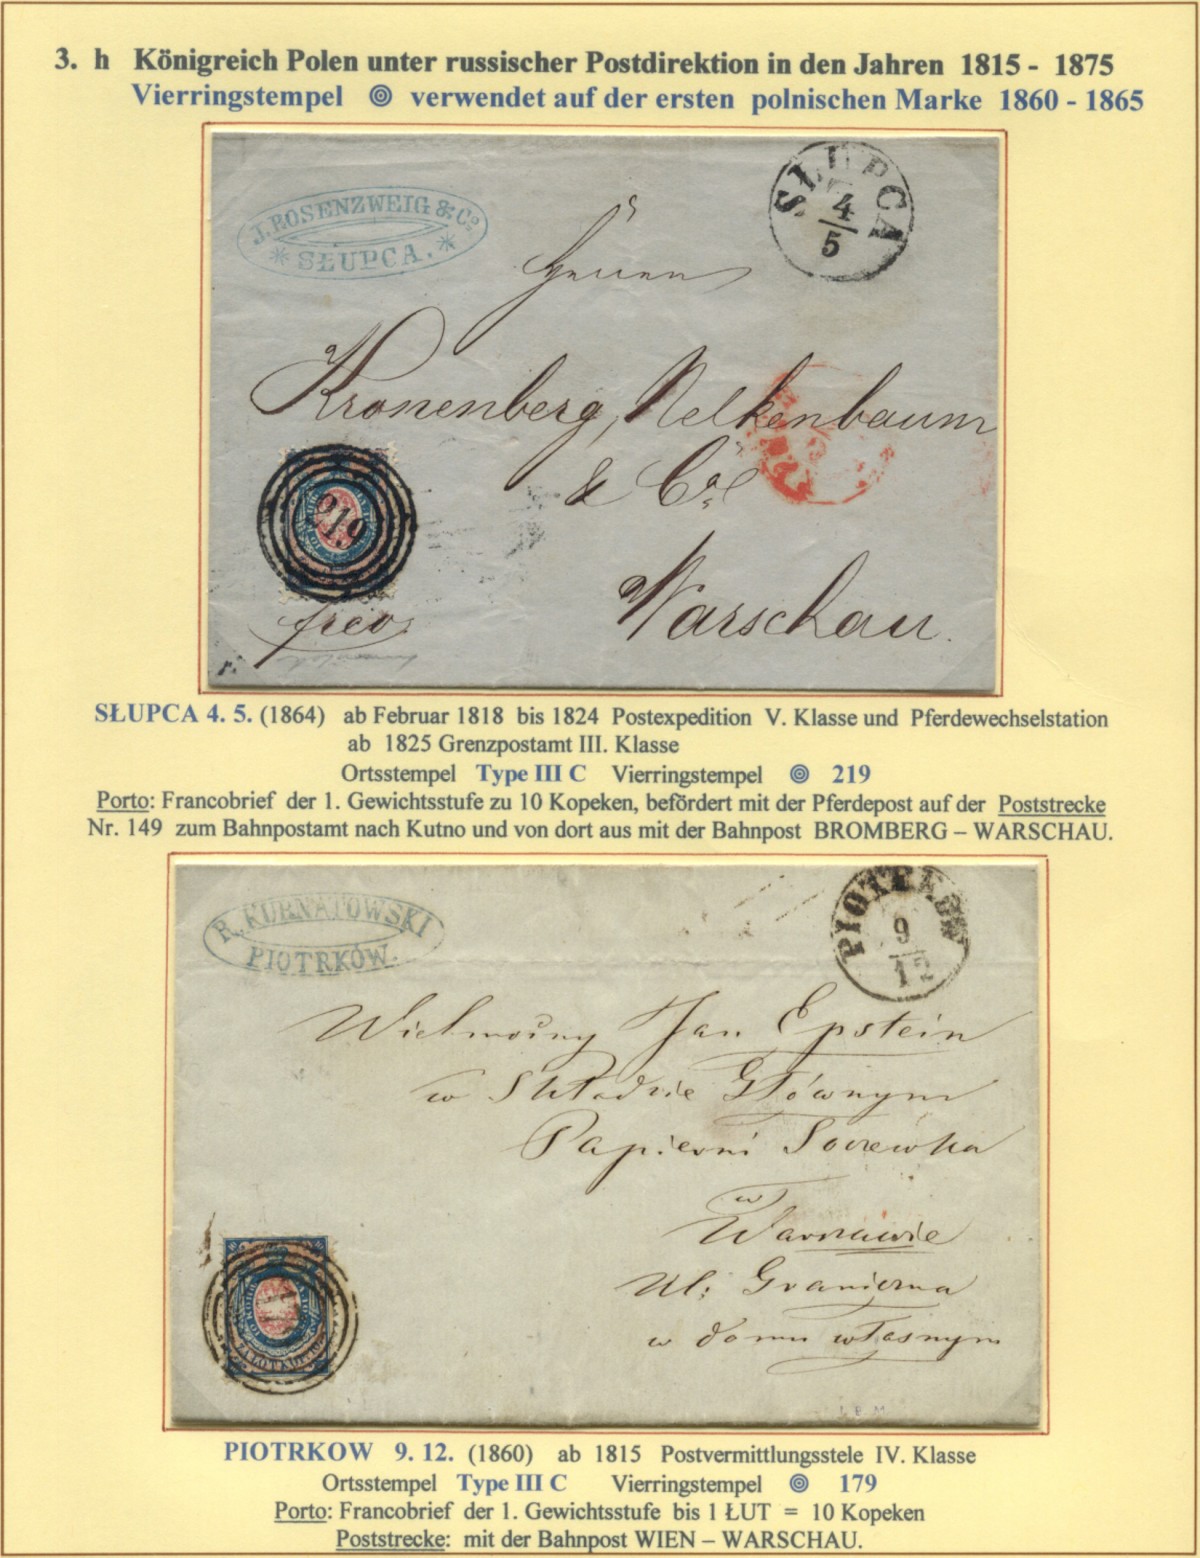 3. h Königreich Polen unter russischer Postdirektion in den Jahren 1815 - 1875
Vierringstempel verwendet auf der ersten polnischen Marke 1860 - 1865
J. ROSENZWEIG & Co
* SŁUPCA. *
SLUPCA
4
5
Herren
Kronenberg, Nelkenbaum
& Co
219
Warschau.
freo
SŁUPCA 4. 5. (1864) ab Februar 1818 bis 1824 Postexpedition V. Klasse und Pferdewechselstation
ab 1825 Grenzpostamt III. Klasse
Ortsstempel Type III C Vierringstempel 219
Porto: Francobrief der 1. Gewichtsstufe zu 10 Kopeken, befördert mit der Pferdepost auf der Poststrecke
Nr. 149 zum Bahnpostamt nach Kutno und von dort aus mit der Bahnpost BROMBERG – WARSCHAU.
R. KURNATOWSKI
PIOTRKÓW.
PIOTRKOW
9
12
Wielmożny Jan Epstein
w Składzie Głównym
Papierni Soczewka
w
Warszawie
Ul: Graniczna
w domu własnym
PIOTRKOW 9. 12. (1860) ab 1815 Postvermittlungsstele IV. Klasse
Ortsstempel Type III C Vierringstempel 179
Porto: Francobrief der 1. Gewichtsstufe bis 1 ŁUT = 10 Kopeken
Poststrecke: mit der Bahnpost WIEN – WARSCHAU.